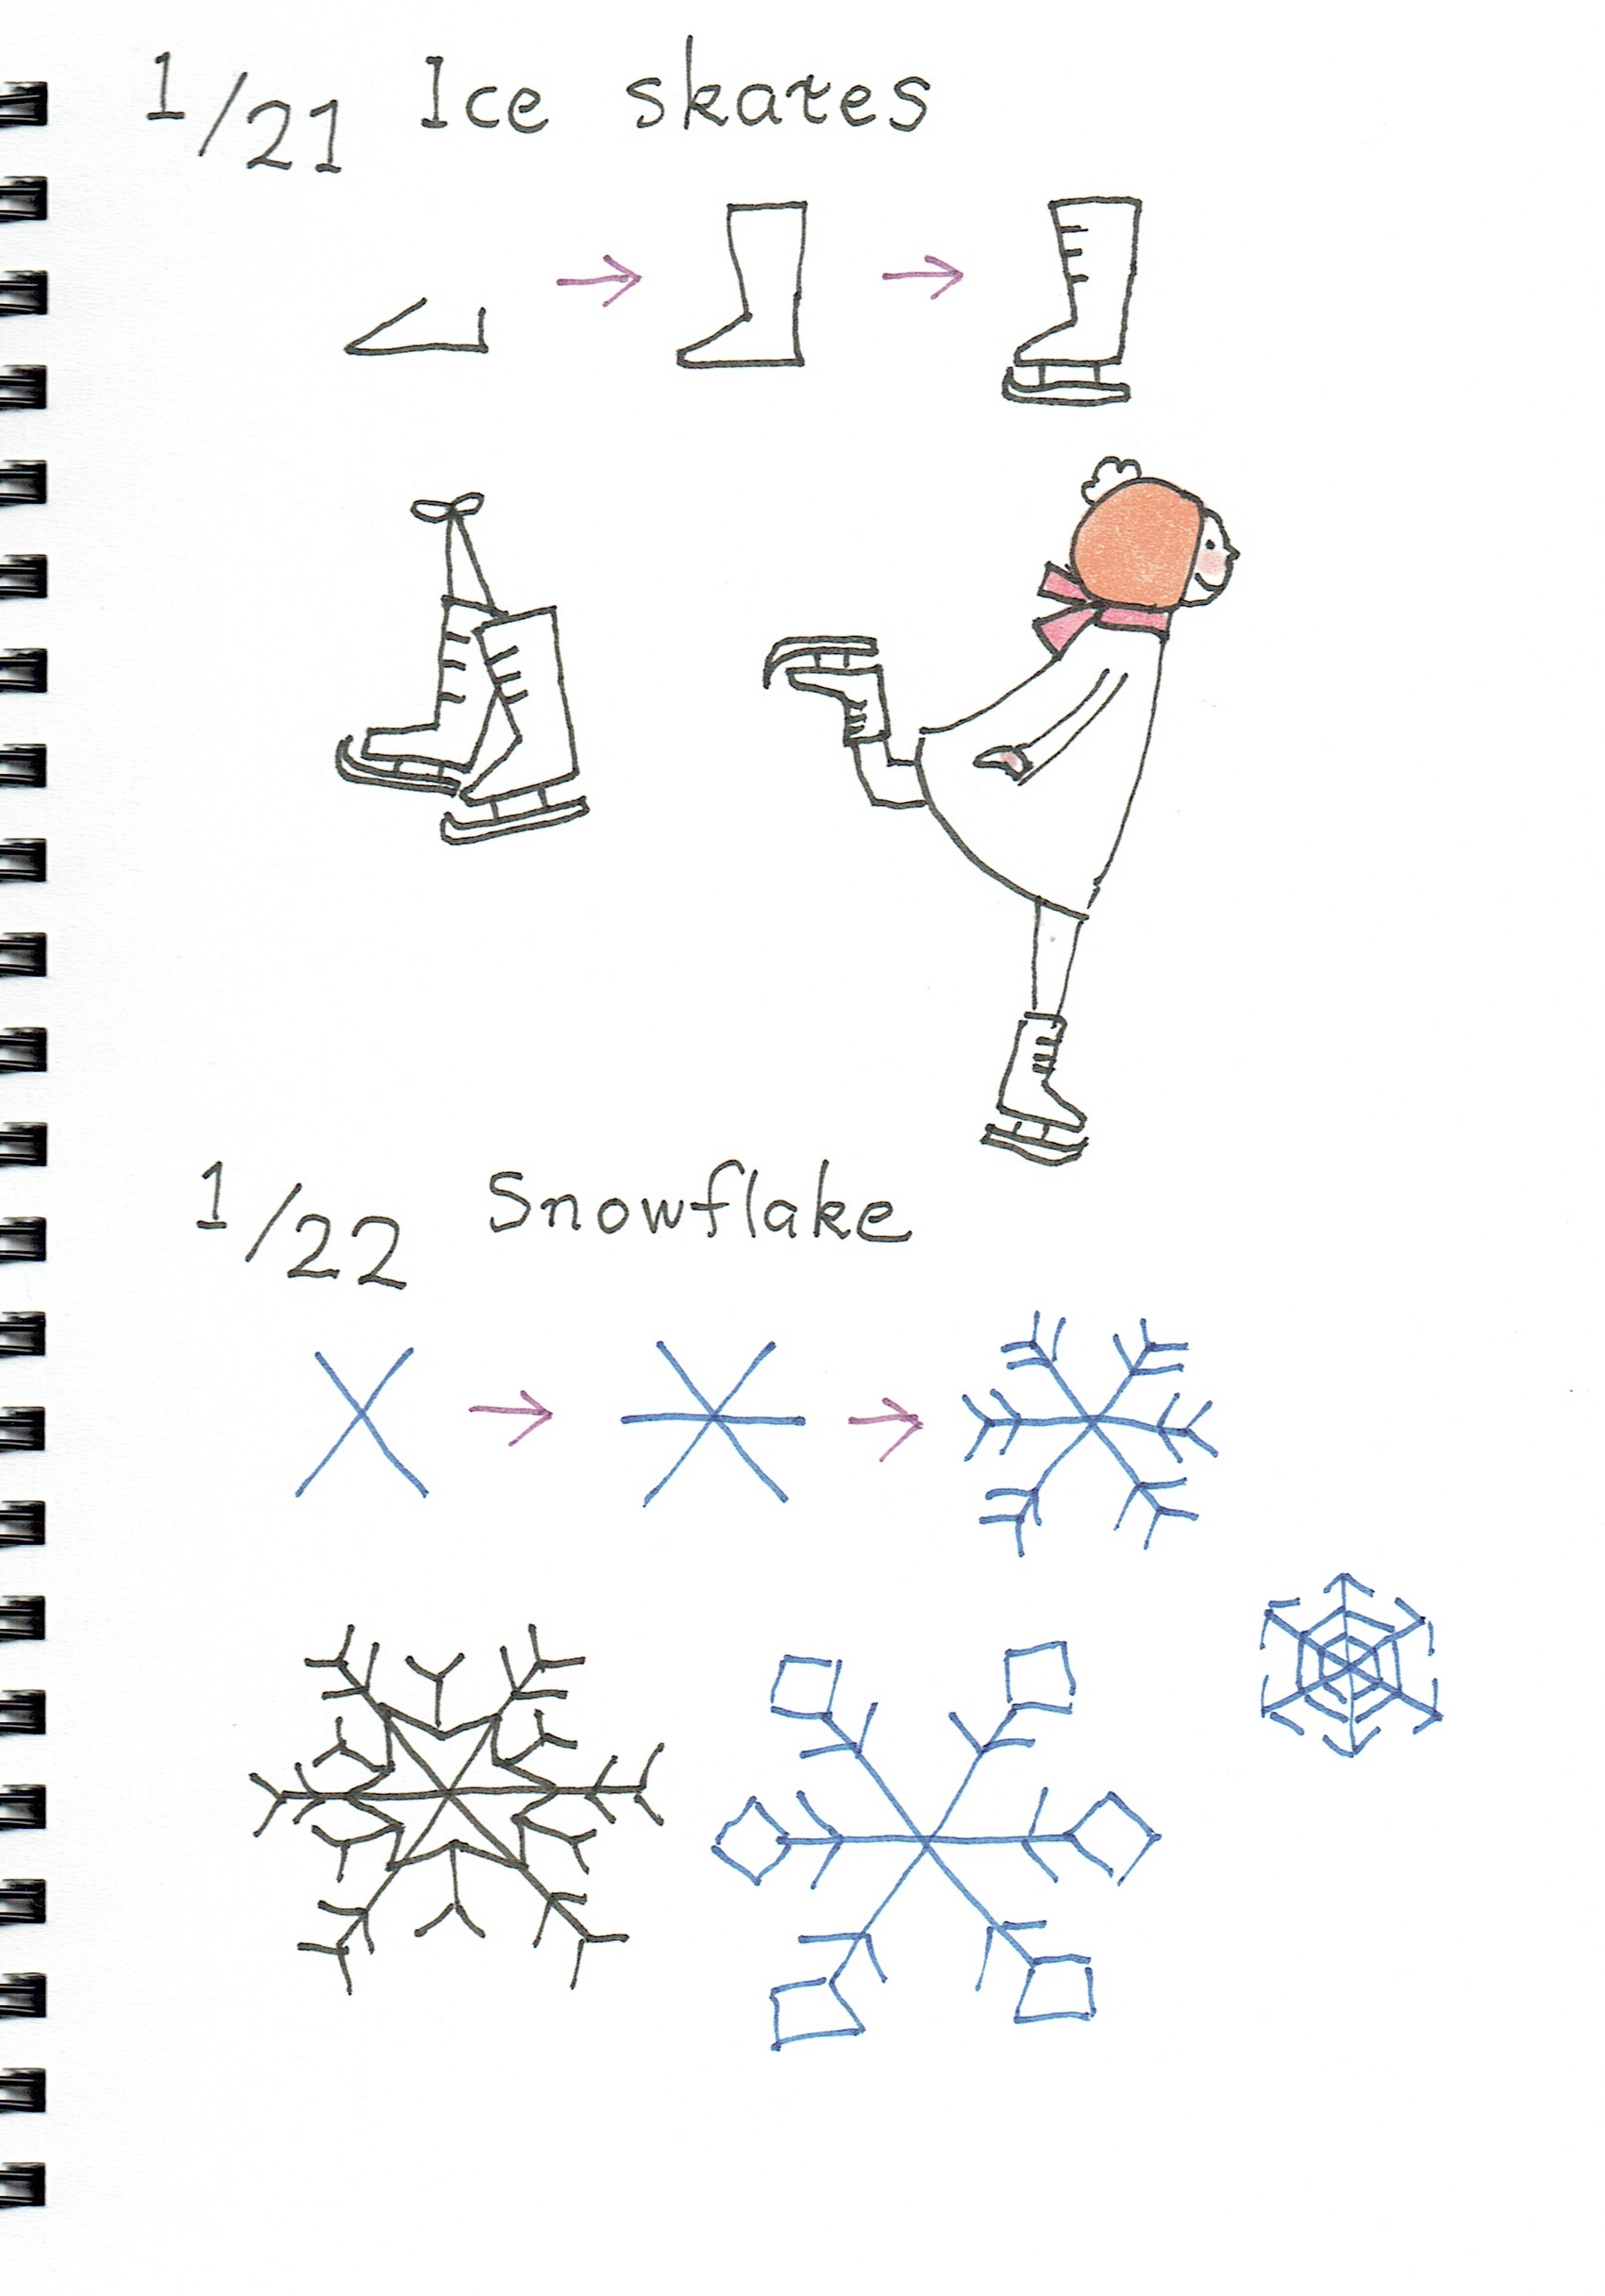 1/21 Ice skates
1/22 Snowflake